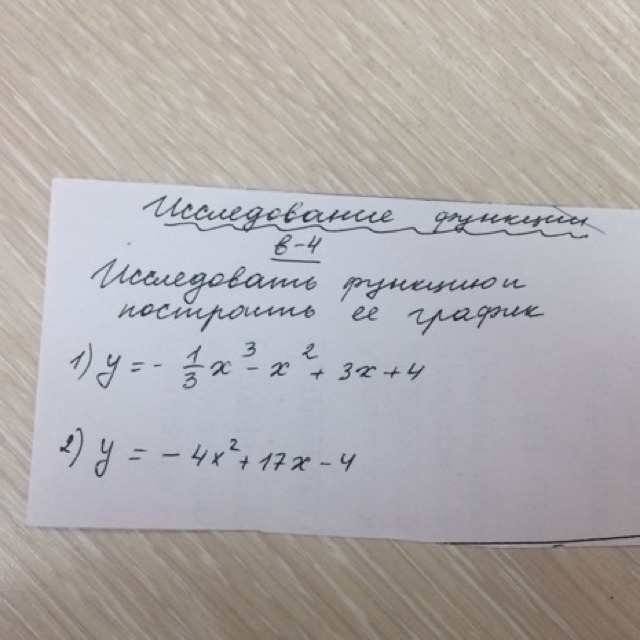 Исследование функции
в-4
Исследовать функцию и
построить ее график
1) y = - 1/3 x³ - x² + 3x + 4
2) y = - 4x² + 17x - 4